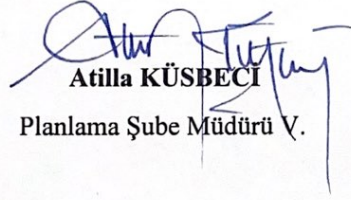 Atilla KÜSBECİ
Planlama Şube Müdürü V.